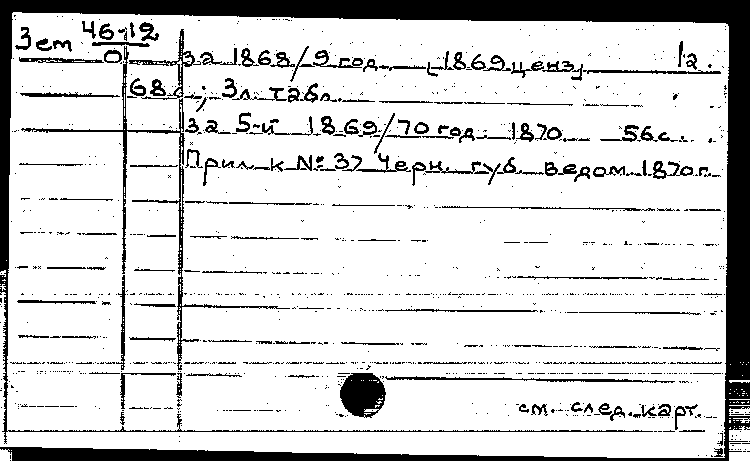 Зем 46-12
0
за 1868/9 год. [1869 ценз] 12.
68 с.; 3 л. табл.
за 5-й 1869/70 год. 1870. 56 с.
Прил. к № 37 Черн. губ. ведом. 1870 г.
см. след. карт.